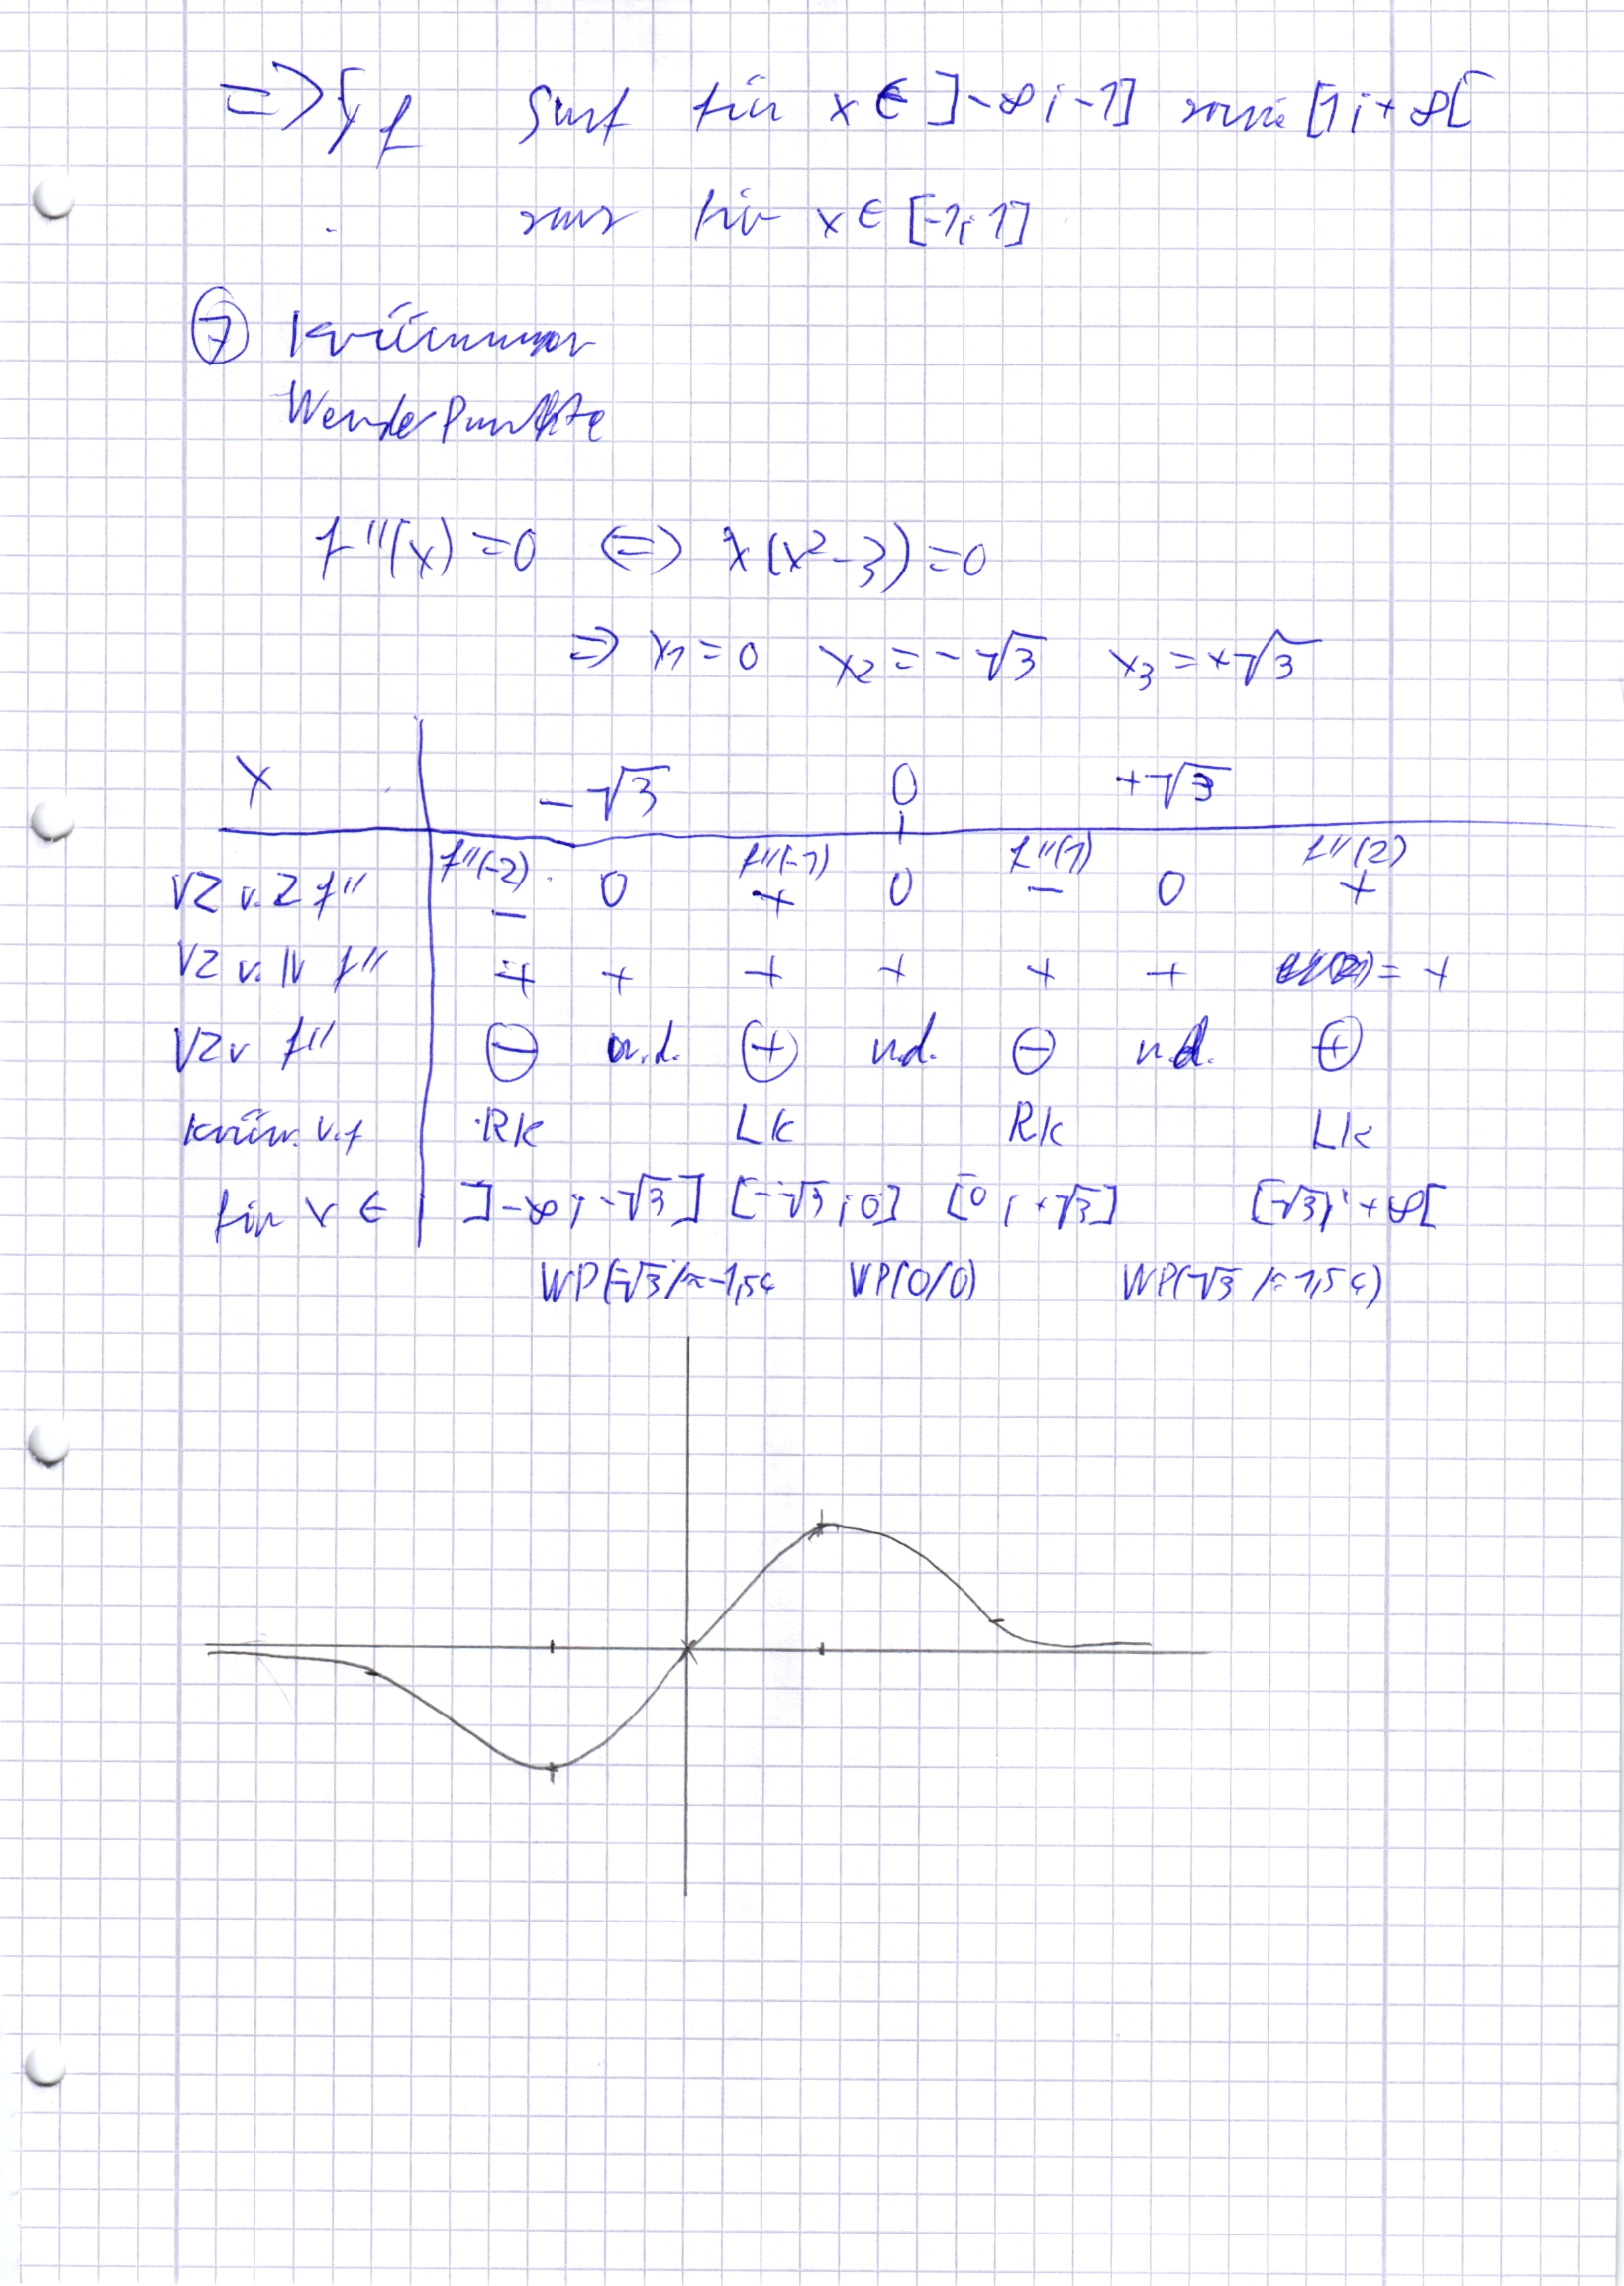 => G_f smf für x ∈ ]-∞; -1] sowie [1; +∞[
sms für x ∈ [-1; 1]
⑦ Krümmung
Wendepunkte
f''(x) = 0 <=> x(x²-3) = 0
=> x₁ = 0 x₂ = -√3 x₃ = +√3
x -√3 0 +√3
f''(-2) f''(-1) f''(1) f''(2)
VZ v. Z f'' - 0 + 0 - 0 +
VZ v. N f'' + + + + + + = +
VZ v f'' ⊖ n.d. ⊕ n.d. ⊖ n.d. ⊕
Krüm. v. f RK LK RK LK
für x ∈ ]-∞; -√3] [-√3; 0] [0; +√3] [√3; +∞[
WP(-√3/≈-1,54 WP(0/0) WP(√3/≈1,54)